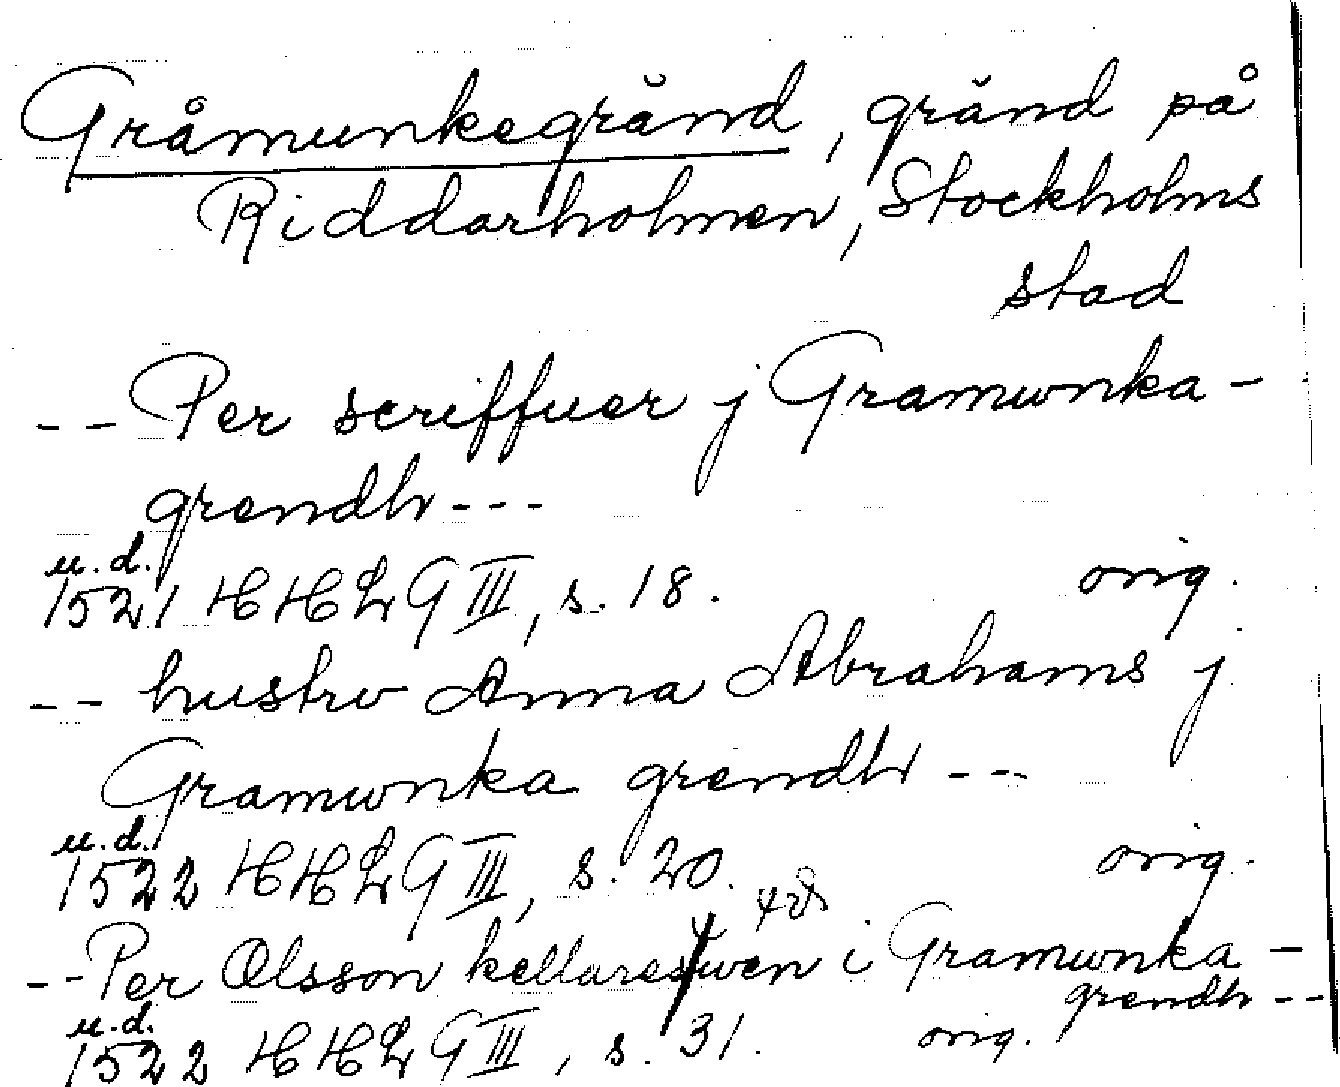 Gråmunkegränd, gränd på
Riddarholmen, Stockholms
stad
-- Per scriffuer j Gramwnka-
grendh ---
u.d.
1521 HHLG III, s. 18. orig.
-- hustrv Anna Abrahams j
Gramwnka grendh ---
u.d.
1522 HHLG III, s. 20. orig.
-- Per Olsson kellareswen i Gramwnka-
grendh --
u.d.
1522 HHLG III, s. 31. orig.